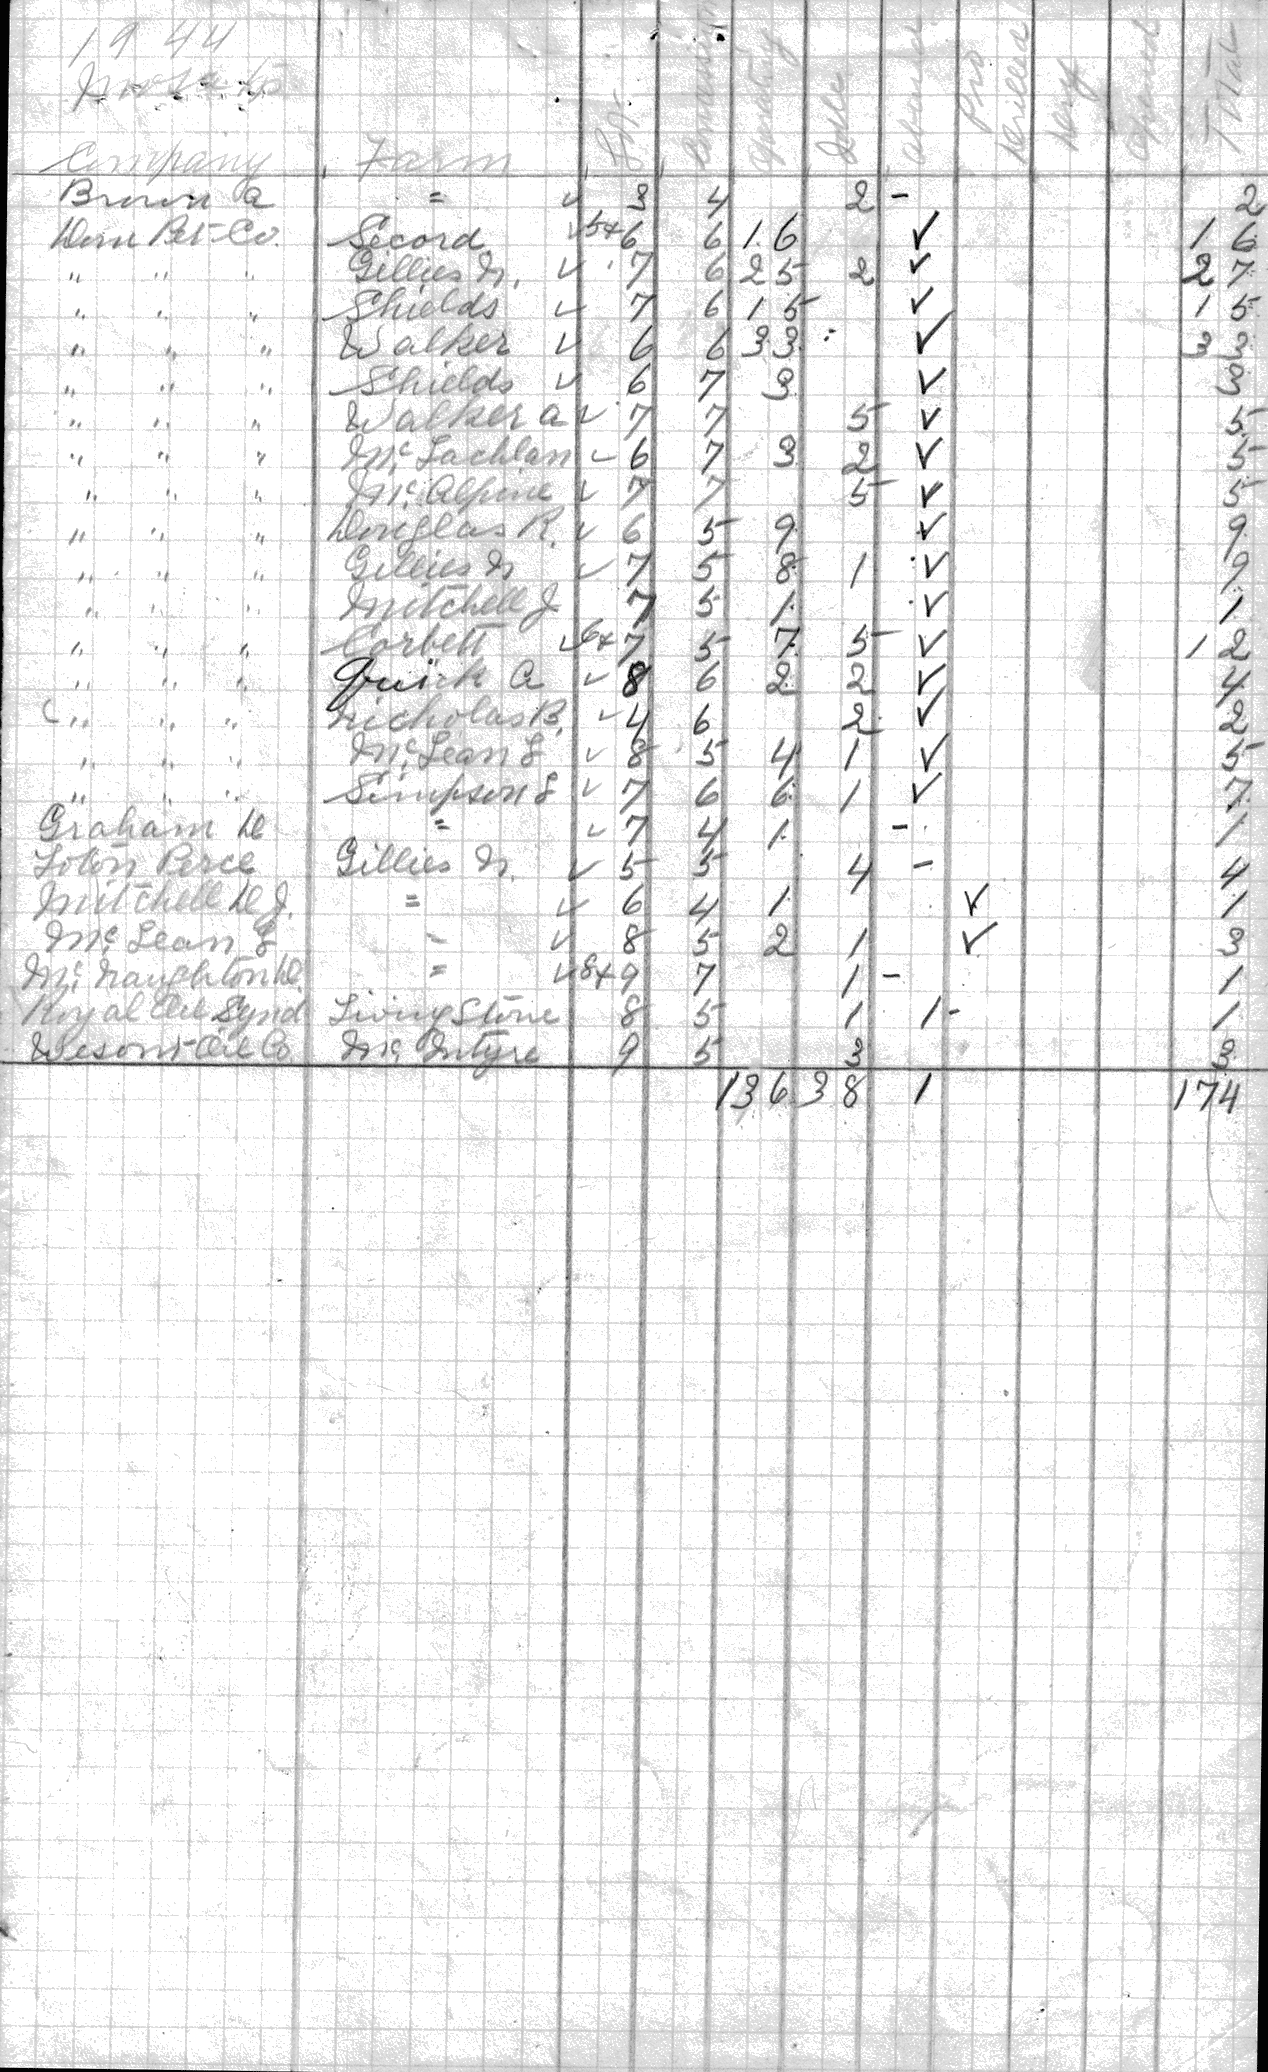 1944
Mosa Tp
Company Farm Lot Concession Operating Idle Aband Pros Drilled Dry Total
Brown A " ✓ 3 4 2 - 2
Dom Pet Co. Secord ✓ 5+6 6 16 ✓ 16
" " " Gillies N. ✓ 7 6 25 2 ✓ 27
" " " Shields ✓ 7 6 15 ✓ 15
" " " Walker ✓ 6 6 33 ✓ 33
" " " Shields ✓ 6 7 3 ✓ 3
" " " Walker A ✓ 7 7 5 ✓ 5
" " " McLachlan ✓ 6 7 3 2 ✓ 5
" " " McAlpine ✓ 7 7 5 ✓ 5
" " " Douglas R. ✓ 6 5 9 ✓ 9
" " " Gillies N ✓ 7 5 8 1 ✓ 9
" " " Mitchell J 7 5 1 ✓ 1
" " " Corbett ✓ 6+7 5 7 5 ✓ 12
" " " Quirk A ✓ 8 6 2 2 ✓ 4
" " " Nicholas B. ✓ 4 6 2 ✓ 2
" " " McLean L ✓ 8 5 4 1 ✓ 5
" " " Simpson L ✓ 7 6 6 1 ✓ 7
Graham D " ✓ 7 4 1 - 1
Perce Gillies N. ✓ 5 5 4 - 4
Mitchell D J. " ✓ 6 4 1 ✓ 1
McLean L " ✓ 8 5 2 1 ✓ 3
McNaughton D. " ✓ 8+9 7 1 - 1
Royal Oil Synd Livingstone 8 5 1 1 - 1
Oil Co McIntyre 9 5 3 3
136 38 1 174